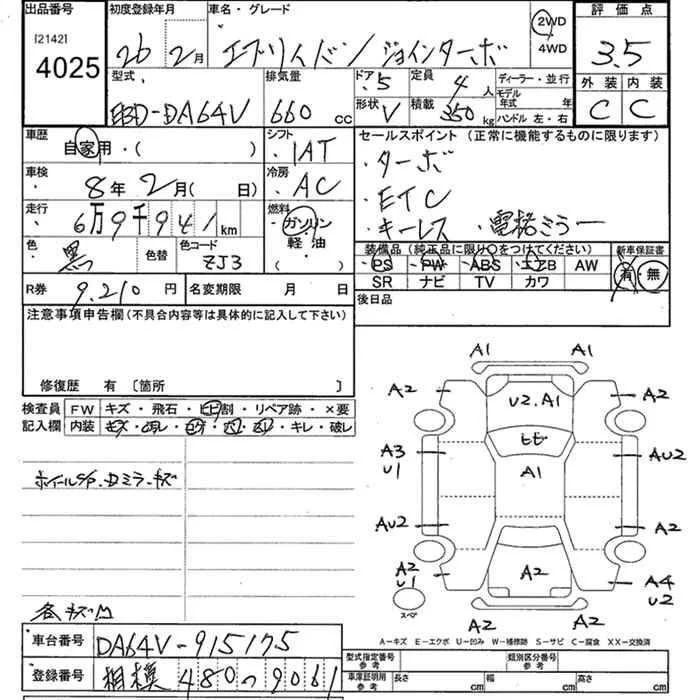 出品番号 初度登録年月 車名・グレード 評価点
[2142]
4025 26年 2月 エブリィバン/ジョインターボ 2WD 4WD 3.5
型式 排気量 ドア 5 定員 4人 ディーラー・並行 外装 内装
EBD-DA64V 660cc 形状 V 積載 350kg モデル年式 年 ハンドル 左・右 C C
車歴 自家用・( ) シフト IAT セールスポイント (正常に機能するものに限ります)
車検 8年2月( 日) 冷房 AC ・ターボ
・ETC
走行 6万9千941km 燃料 ガソリン 軽油 ・キーレス ・電格ミラー
色 黒 色替 色コード ZJ3 装備品(純正品に限り○をつけてください) 新車保証書
PS PW ABS エアB AW 有・無
SR ナビ TV カワ
R券 9.210円 名変期限 月 日 後日品
注意事項申告欄(不具合内容等は具体的に記入して下さい)
修復歴 有 〔箇所 〕
検査員 FW キズ・飛石・ヒビ割・リペア跡・×要
記入欄 内装 キズ・ ・ ・ ・ ・キレ・破レ
ホイール ミラーキズ
各キズ凹
A1 A1
A2 U2.A1 A2
ヒビ
A3 U1 A1 AU2
AU2 A2
A2 U1 A2 A4 U2
スペア A2 A2
A-キズ E-エクボ U-凹み W-補修跡 S-サビ C-腐食 XX-交換済
車台番号 DA64V-915175 型式指定番号 参考 類別区分番号 参考
登録番号 相模 480 つ 9061 車庫証明用 参考 長さ cm 幅 cm 高さ cm